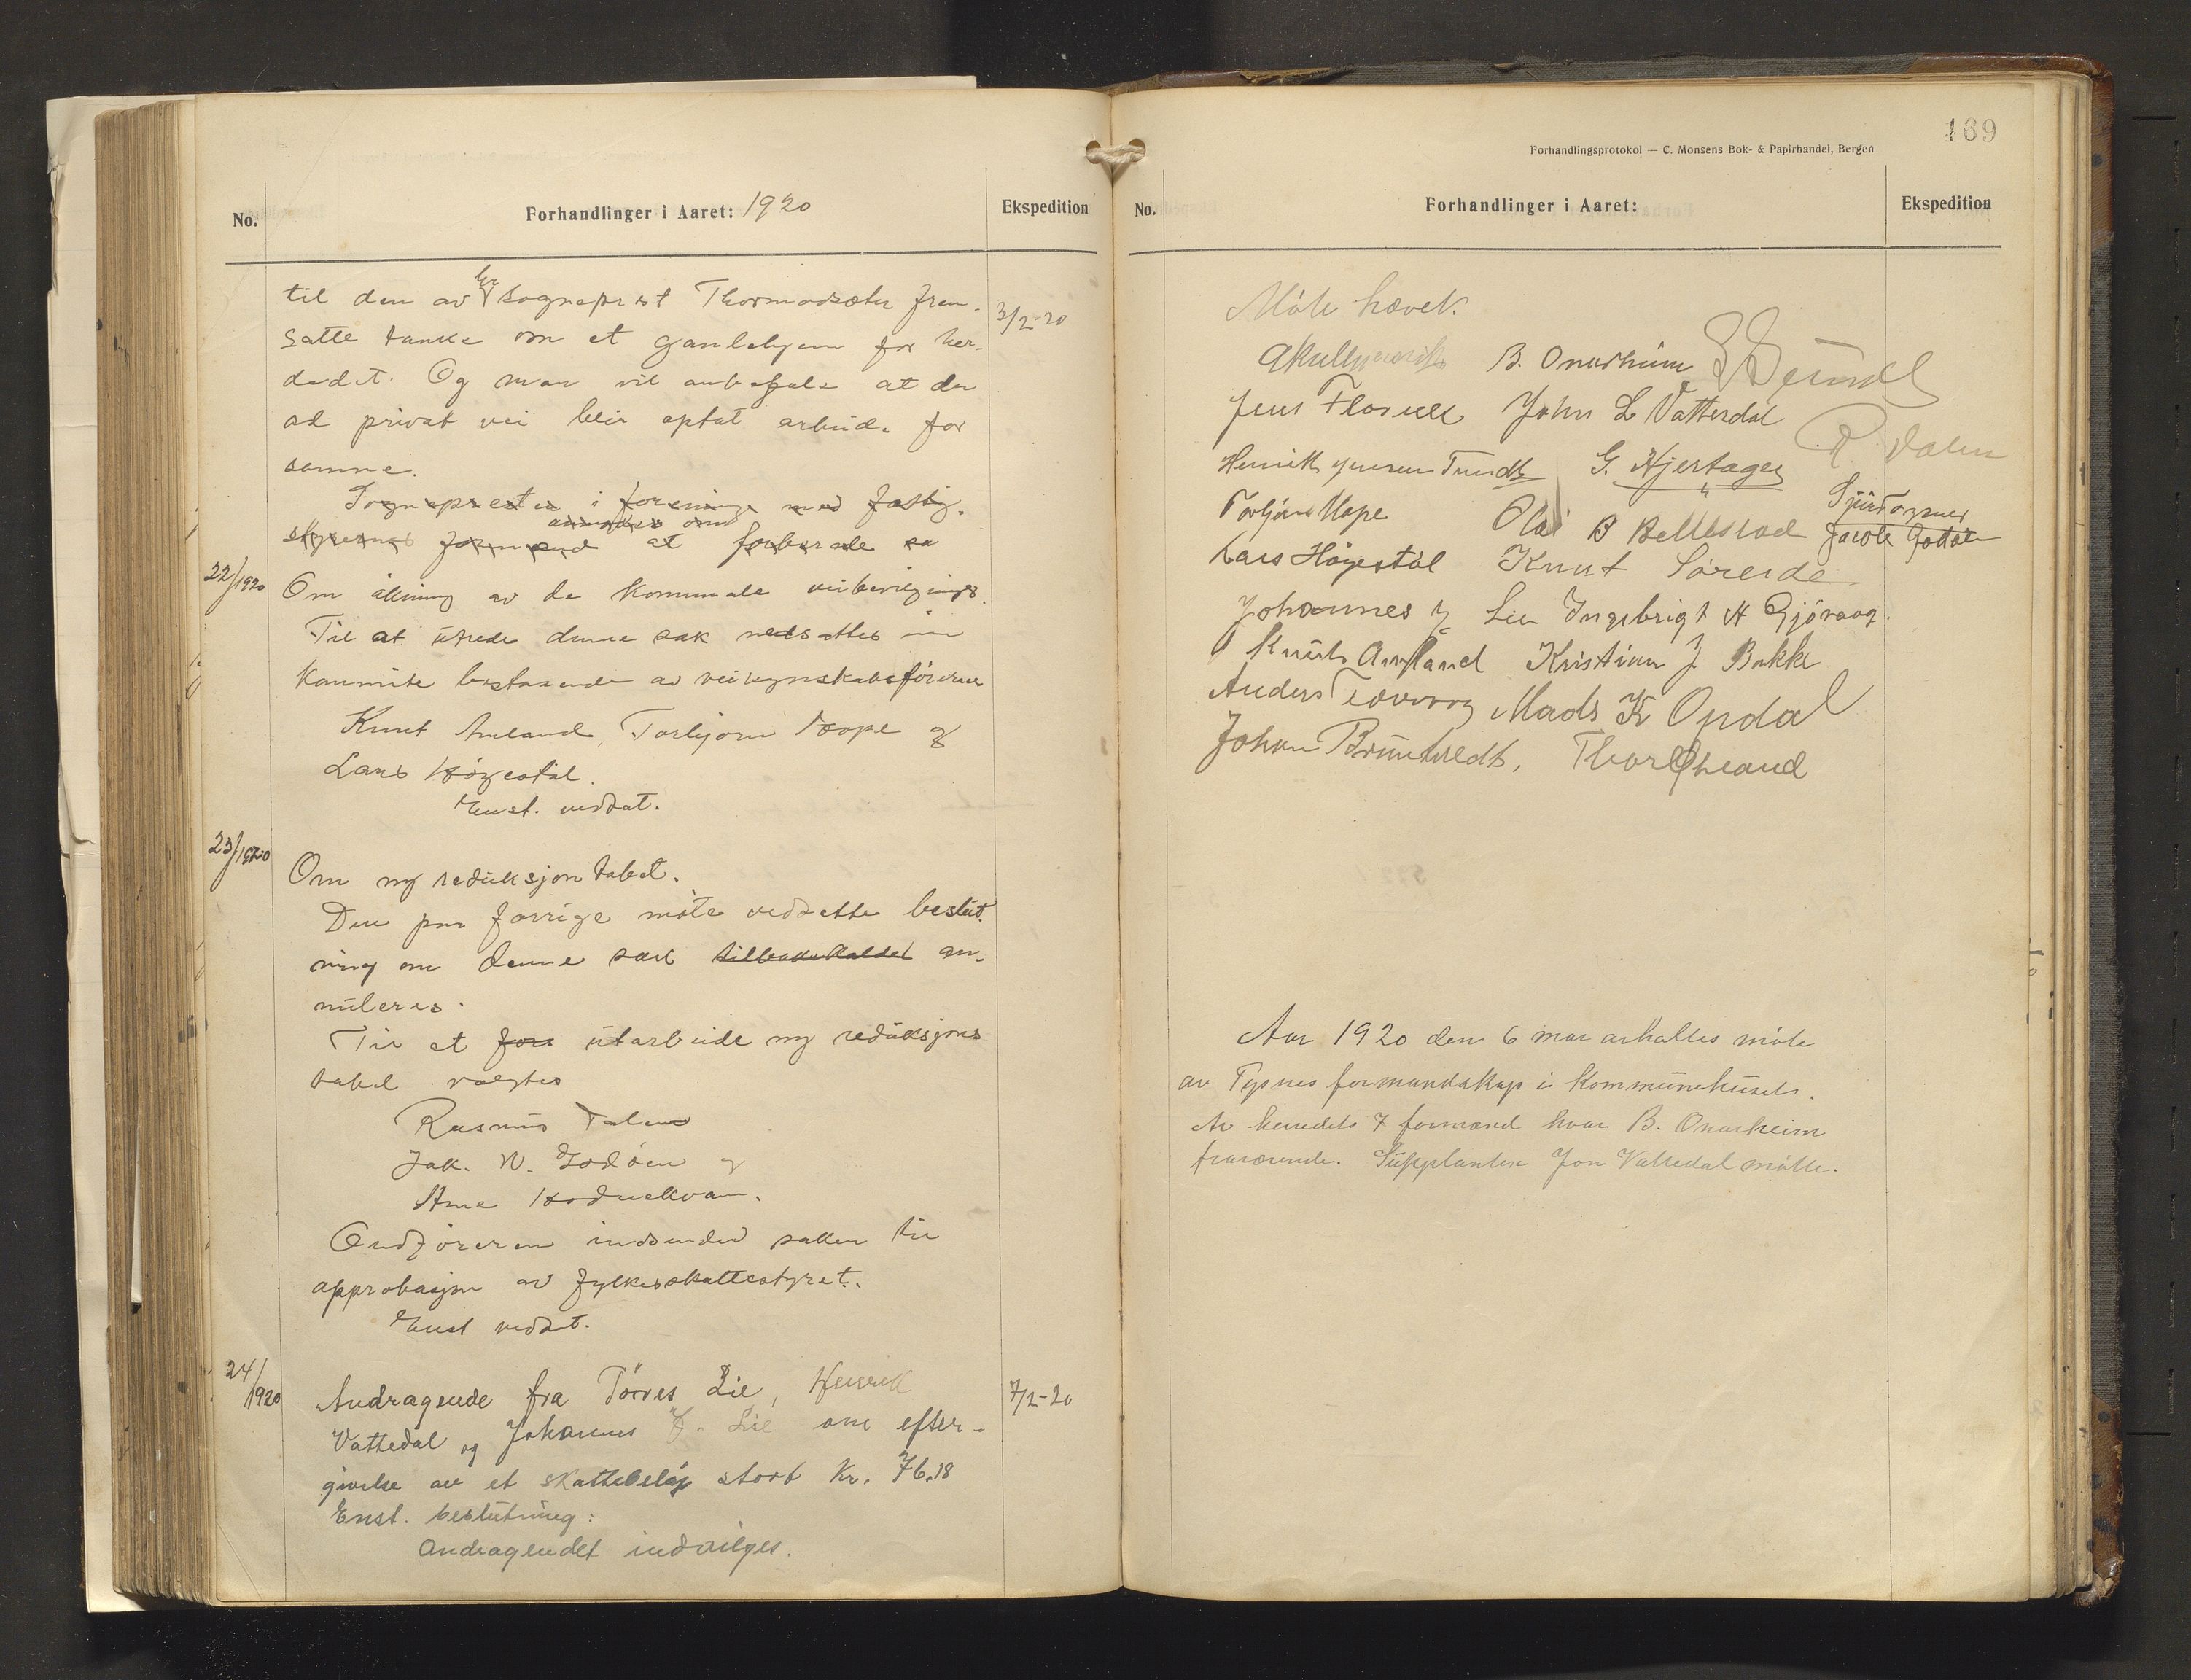 No.
Forhandlinger i Aaret: 1920
Ekspedition
til den av hr sogneprest Thormodsæter frem-
3/2-20
satte tanke om et gamlehjem for her-
dedet. Og man vil anbefale at der
ad privat vei blir optat arbeide for
samme.
Sognepresten i forening med fattig-
anmodes om
styrernes formand at forberede sa
22/1920
Om likning av de kommunale veibevilgninger.
Til at utrede denne sak nedsattes in
kommite bestaaende av veiregnskabsføreren
Knut Amland, Torbjørn Hope og
Lars Høgestøl.
Enst. vedtat.
23/1920
Om ny reduksjon tabel.
Den paa forrige møte vedtatte beslut-
ning om denne sak tilbakekaldes an-
nuleres.
Til at fore utarbeide ny reduksjons
tabel valgtes
Rasmus Dalen
Jak. N. Godøen og
Arne Hodnekvam.
Ordføreren indsender saken til
approbasjon av fylkesskattestyret.
Enst vedtat.
24/1920
Andragende fra Tørres Lie, Henrik
7/2-20
Vattedal og Johannes J. Lie om efter-
givelse av et skattebeløp stort kr. 76.18
Enst. beslutning:
Andragendet indvilges.
169
Forhandlingsprotokol — C. Monsens Bok- & Papirhandel, Bergen
No.
Forhandlinger i Aaret:
Ekspedition
Møte hævet.
B. Onarheim
Jens Flornes John L Vatterdal
R. Dalen
Henrik Jensen Tveidt G. Hjertager
Torbjørn Hope Olai B Bellesvad Jacob Godøen
Lars Høgestøl Knut Søreide
Johannes J Lie Ingebrigt H Gjøvaag
Knut Amland Kristian J Bakke
Anders Teøvaag Mads K Opdal
Johan Bruntveldt, Thor Øvland
Aar 1920 den 6 mar avholtes møte
av Tysnes formandskap i kommunehuset.
Av herredets 7 formænd hvor B. Onarheim
fraværende. Supplanten Jon Vattedal møtte.